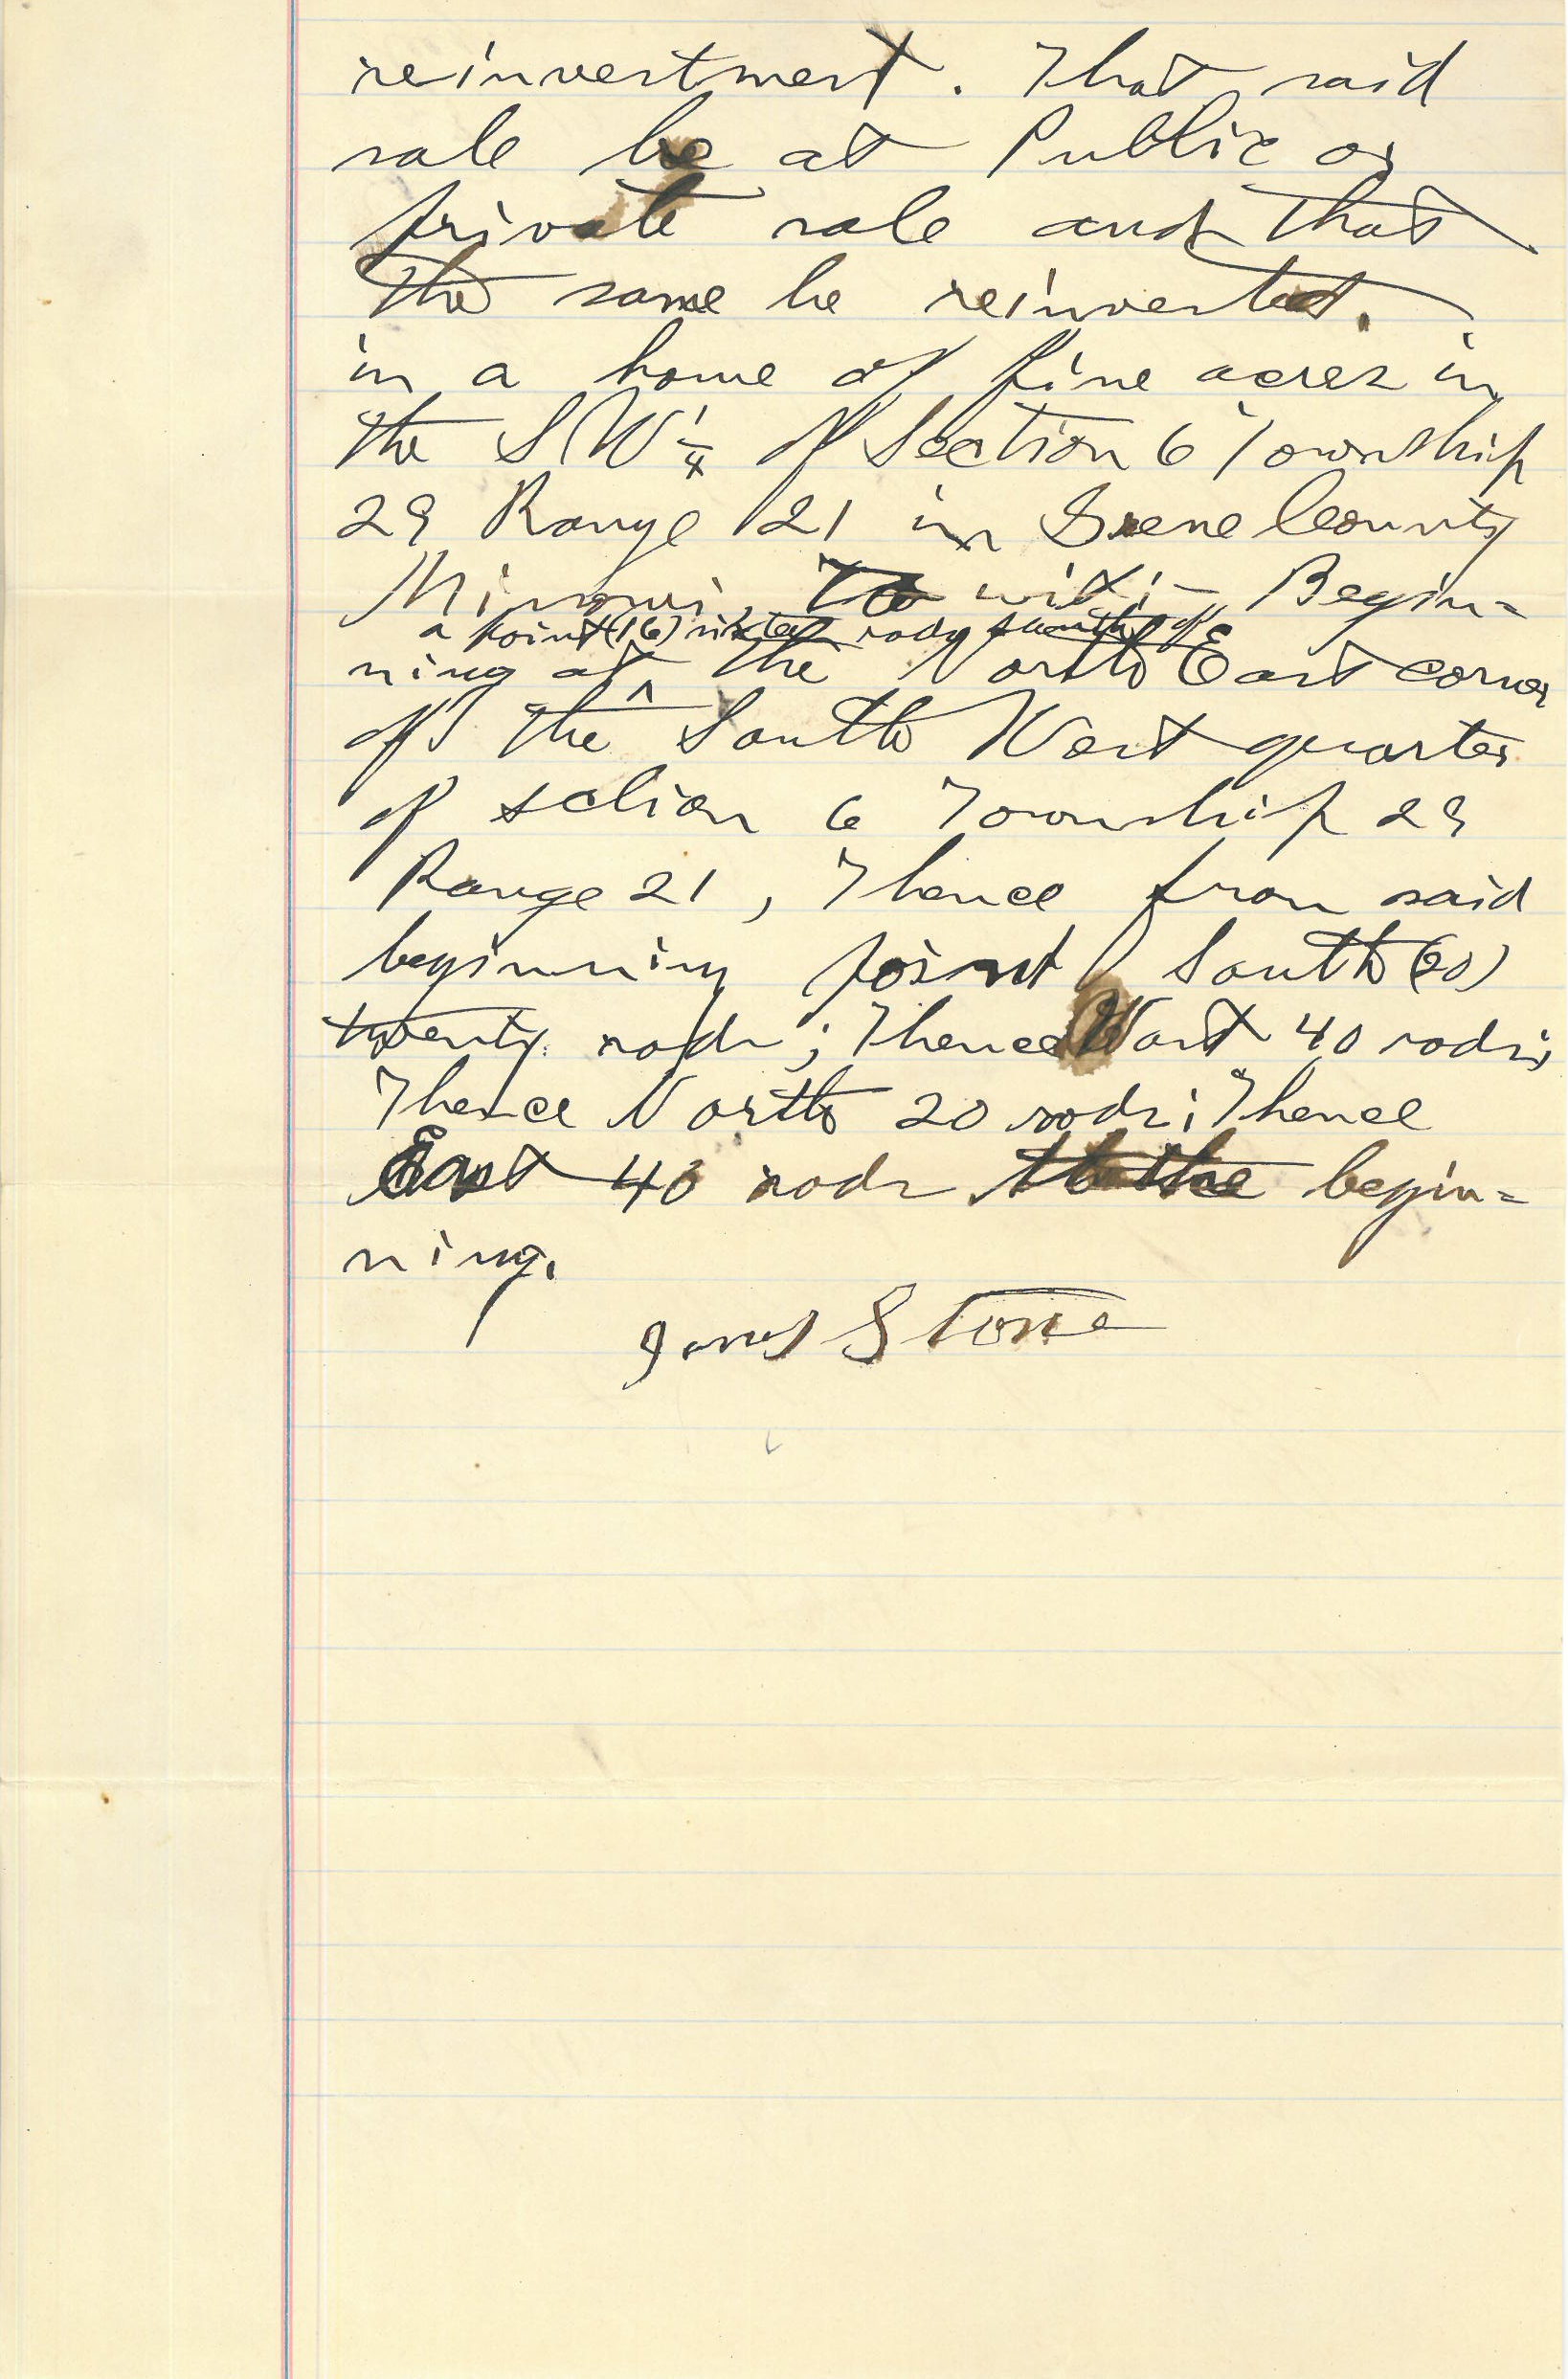 reinvestment. That said
sale be at Public or
private sale and that
the same be reinvested.
in a home of five acres in
the SW 1/4 of Section 6 Township
29 Range 21 in Greene County
Missouri, To wit:- Begin=
a point (16) sixteen rods south of
ning at ^ the North East corner
of the South West quarter
of section 6 Township 29
Range 21, Thence from said
beginning point South (20)
twenty rods; Thence West 40 rods;
Thence North 20 rods; Thence
East 40 rods to the begin=
ning.
Stone